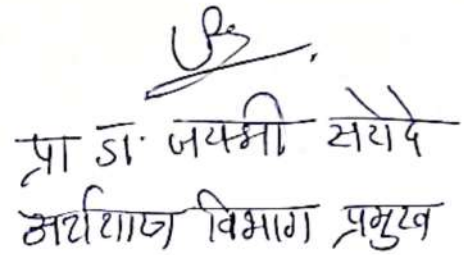 प्रा डा. जयश्री सरोदे
अर्थशास्त्र विभाग प्रमुख